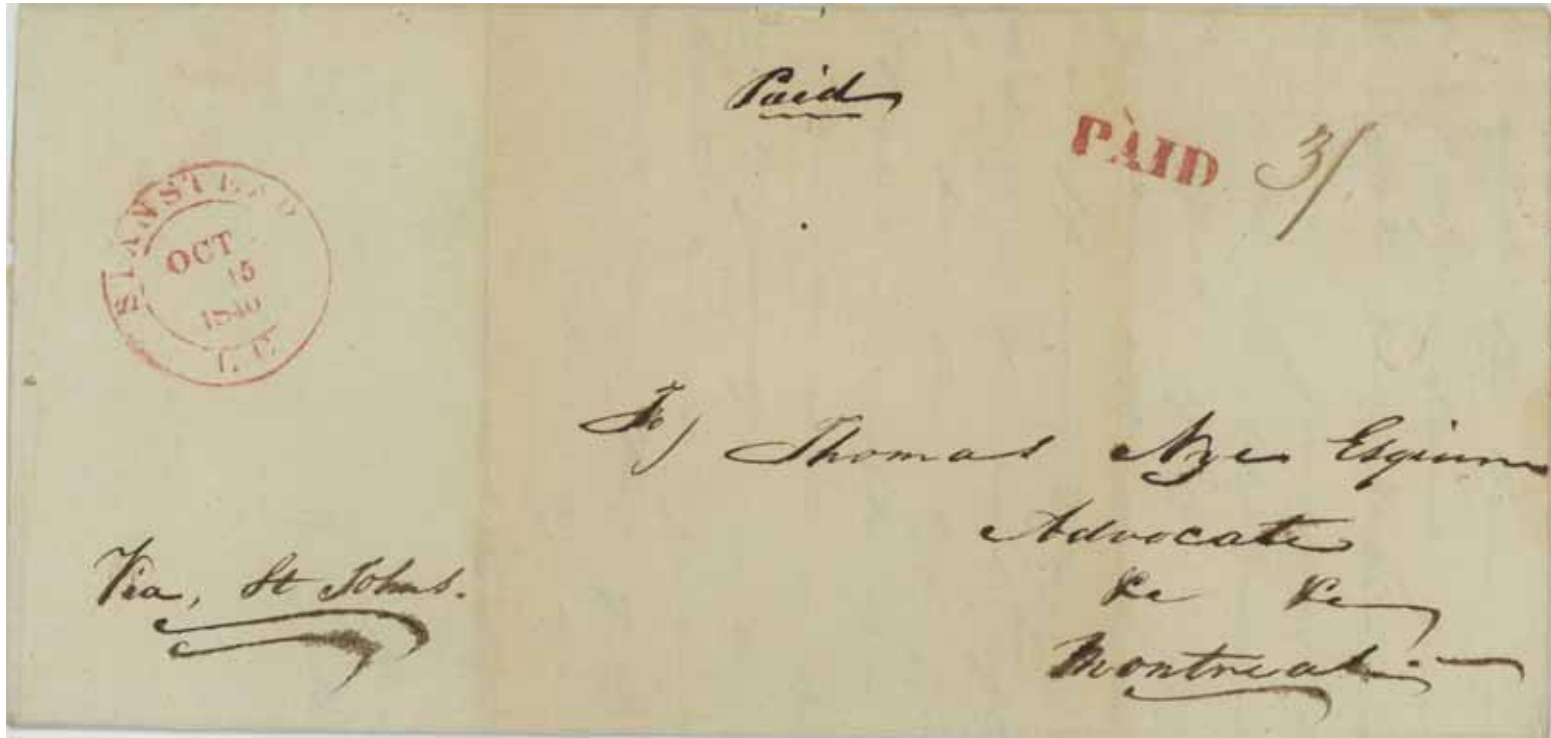 Paid
PAID 3/
STANSTEAD
OCT
15
1840
L.C.
To/ Thomas Nye Esquire
Advocate
&c &c
Montreal.
Via, St Johns.